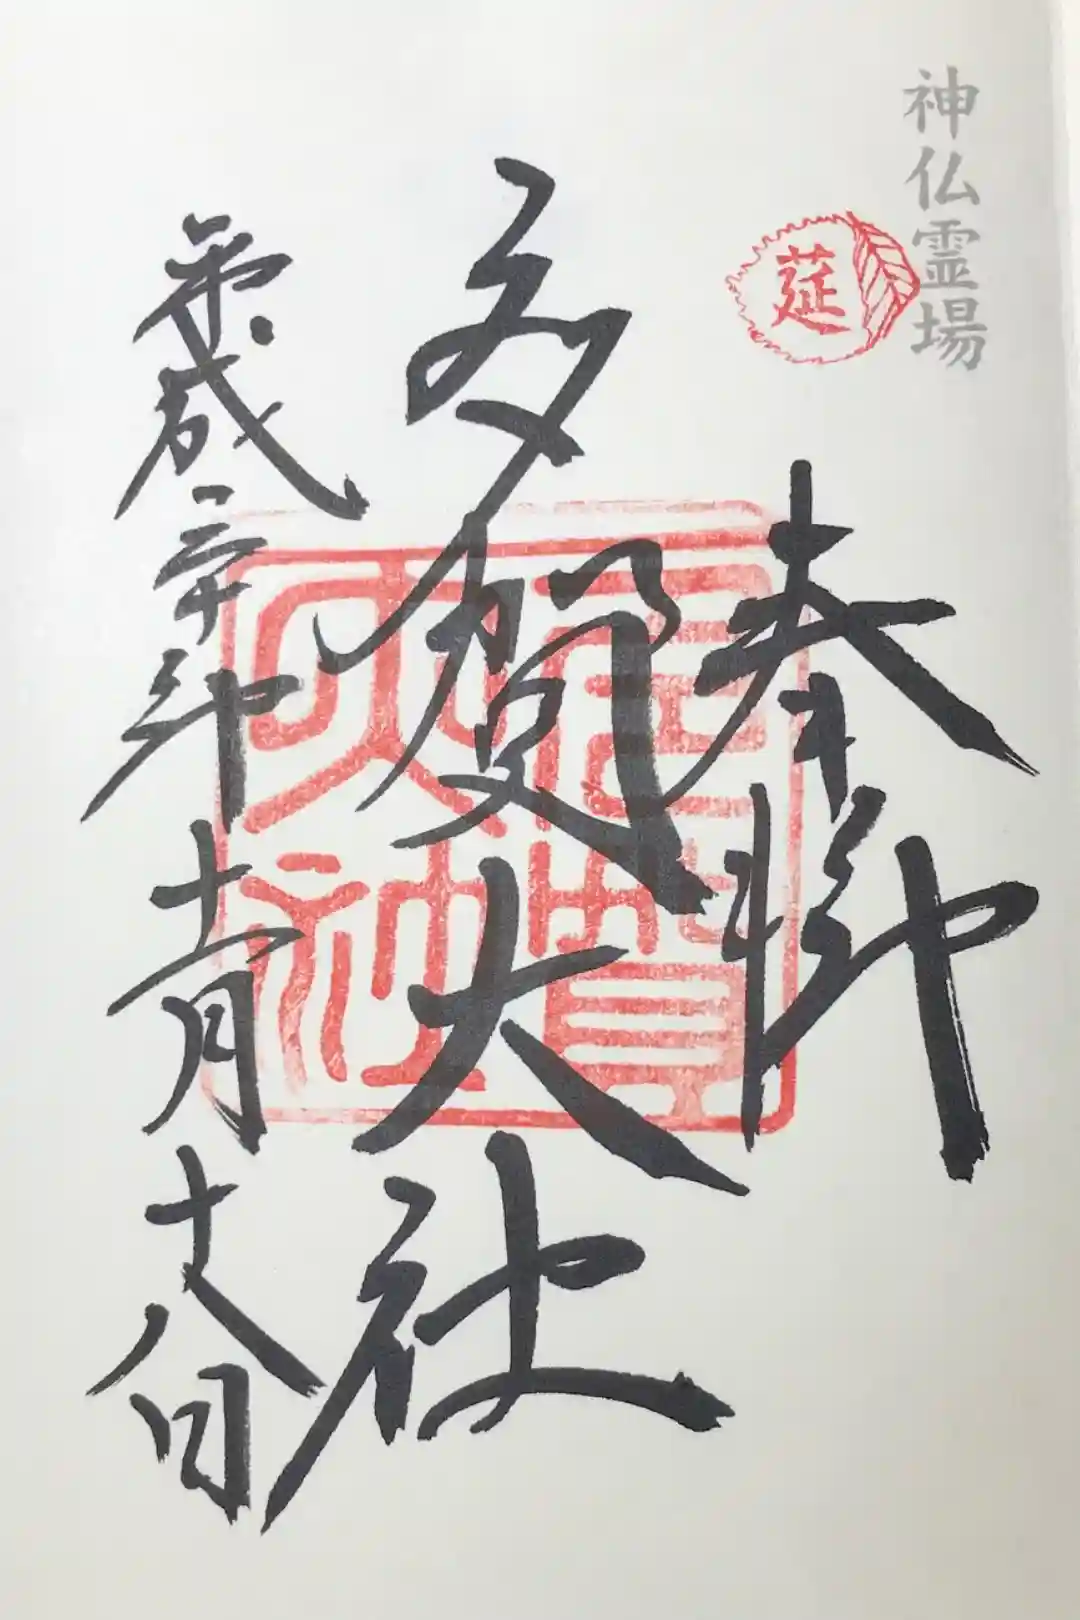 神仏霊場
莚
奉拝
多賀大社
平成三十年十一月十八日